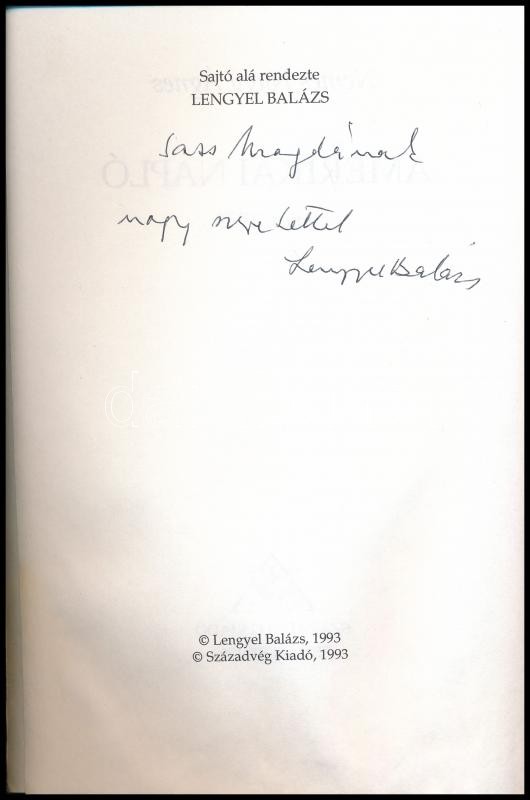 Sajtó alá rendezte
LENGYEL BALÁZS
Sass Magdának
nagy szeretettel
Lengyel Balázs
© Lengyel Balázs, 1993
© Századvég Kiadó, 1993